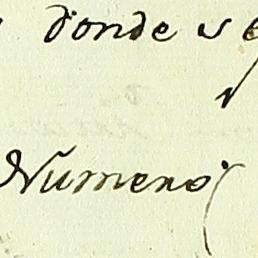 donde se
Numero